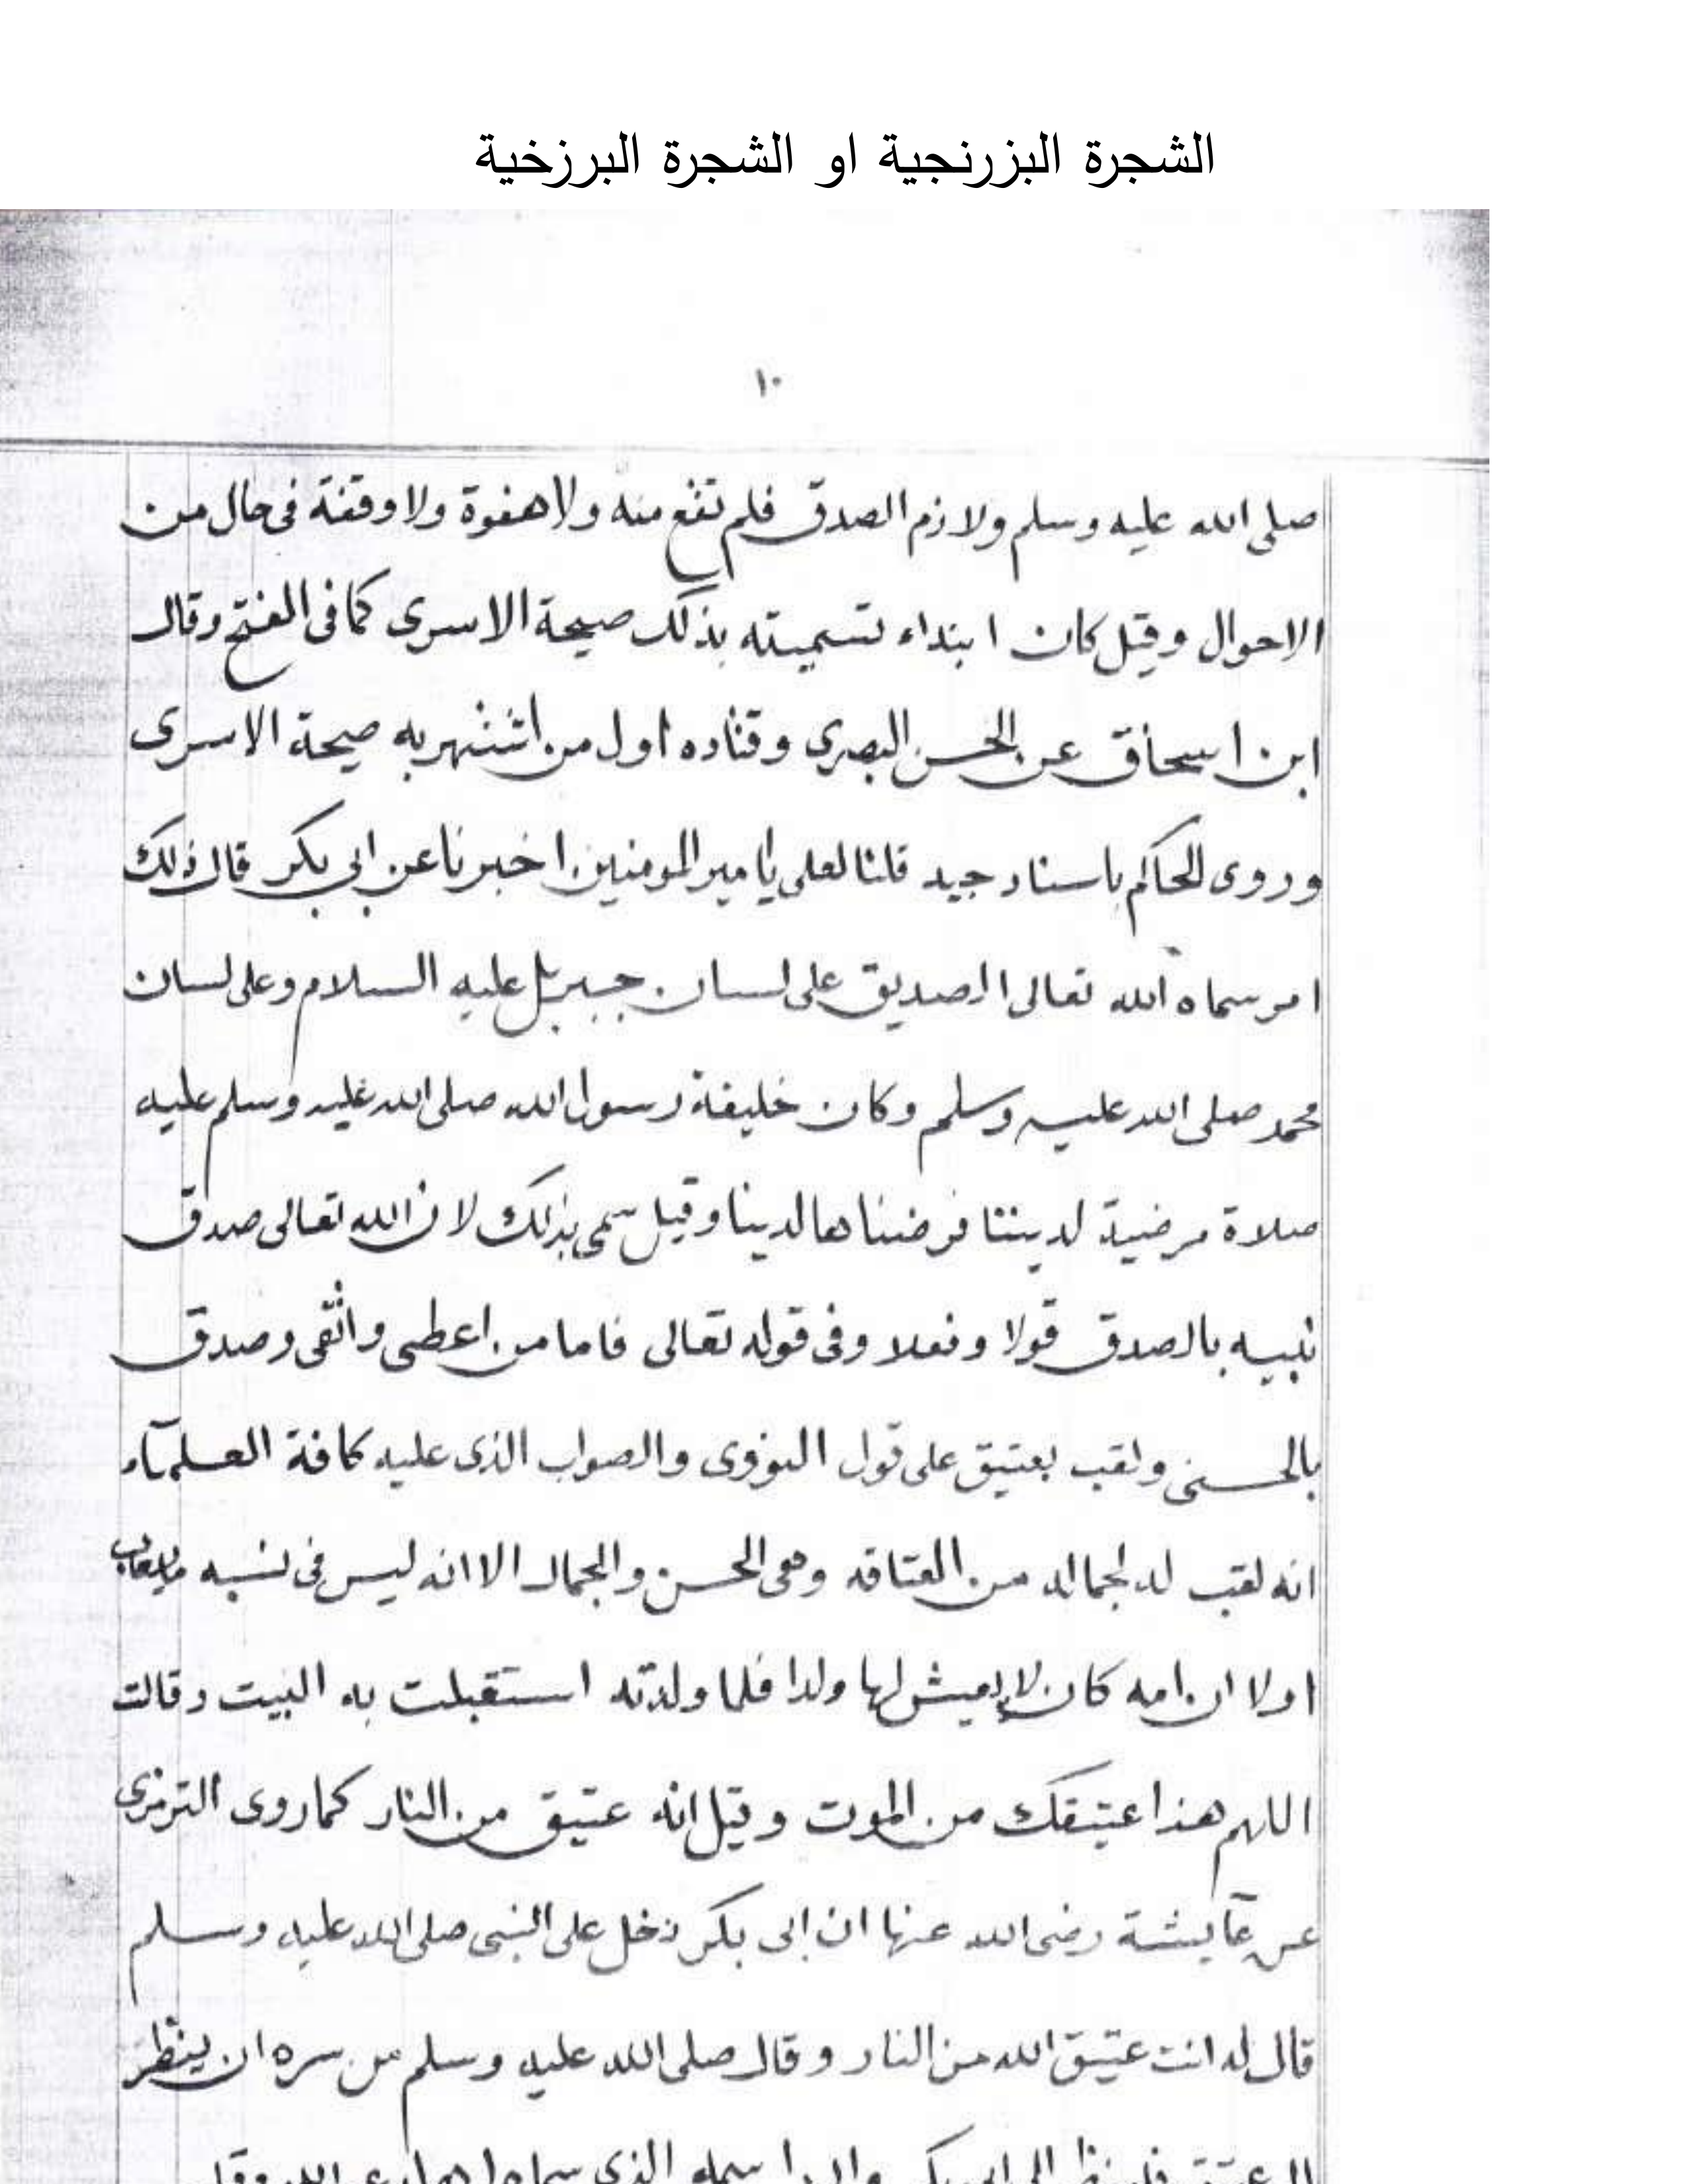 الشجرة البزرنجية او الشجرة البرزخية
١٠
صلى الله عليه وسلم ولازم الصدق فلم تقع منه ولا هفوة ولا وقفة فى حال من
الاحوال وقيل كان ابتداء تسميته بذلك صيحة الاسرى كما فى الفتح وقال
ابن اسحاق عن الحسن البصرى وقتاده اول من اشتهر به صيحة الاسرى
وروى الحاكم باسناد جيد قلنا لعلى يا امير المومنين اخبرنا عن ابى بكر قال ذلك
امر سماه الله تعالى الصديق على لسان جبريل عليه السلام وعلى لسان
محمد صلى الله عليه وسلم وكان خليفة رسول الله صلى الله عليه وسلم عليه
صلاة مرضية لديننا فرضيناها لدينا وقيل سمى بذلك لان الله تعالى صدق
نبيه بالصدق قولا وفعلا وفى قوله تعالى فاما من اعطى واتقى وصدق
بالحسنى ولقب بعتيق على قول النووى والصواب الذى عليه كافة العلمآء
انه لقب له لجماله من العتاقه وهى الحسن والجمال الا انه ليس فى نسبه ما يعاب
اولا ان امه كان لا يعيش لها ولدا فلما ولدته استقبلت به البيت وقالت
اللهم هذا عتيقك من الموت وقيل انه عتيق من النار كما روى الترمزى
عن عآيشة رضى الله عنها ان ابى بكر دخل على النبى صلى الله عليه وسلم
قال له انت عتيق الله من النار وقال صلى الله عليه وسلم من سره ان ينظر